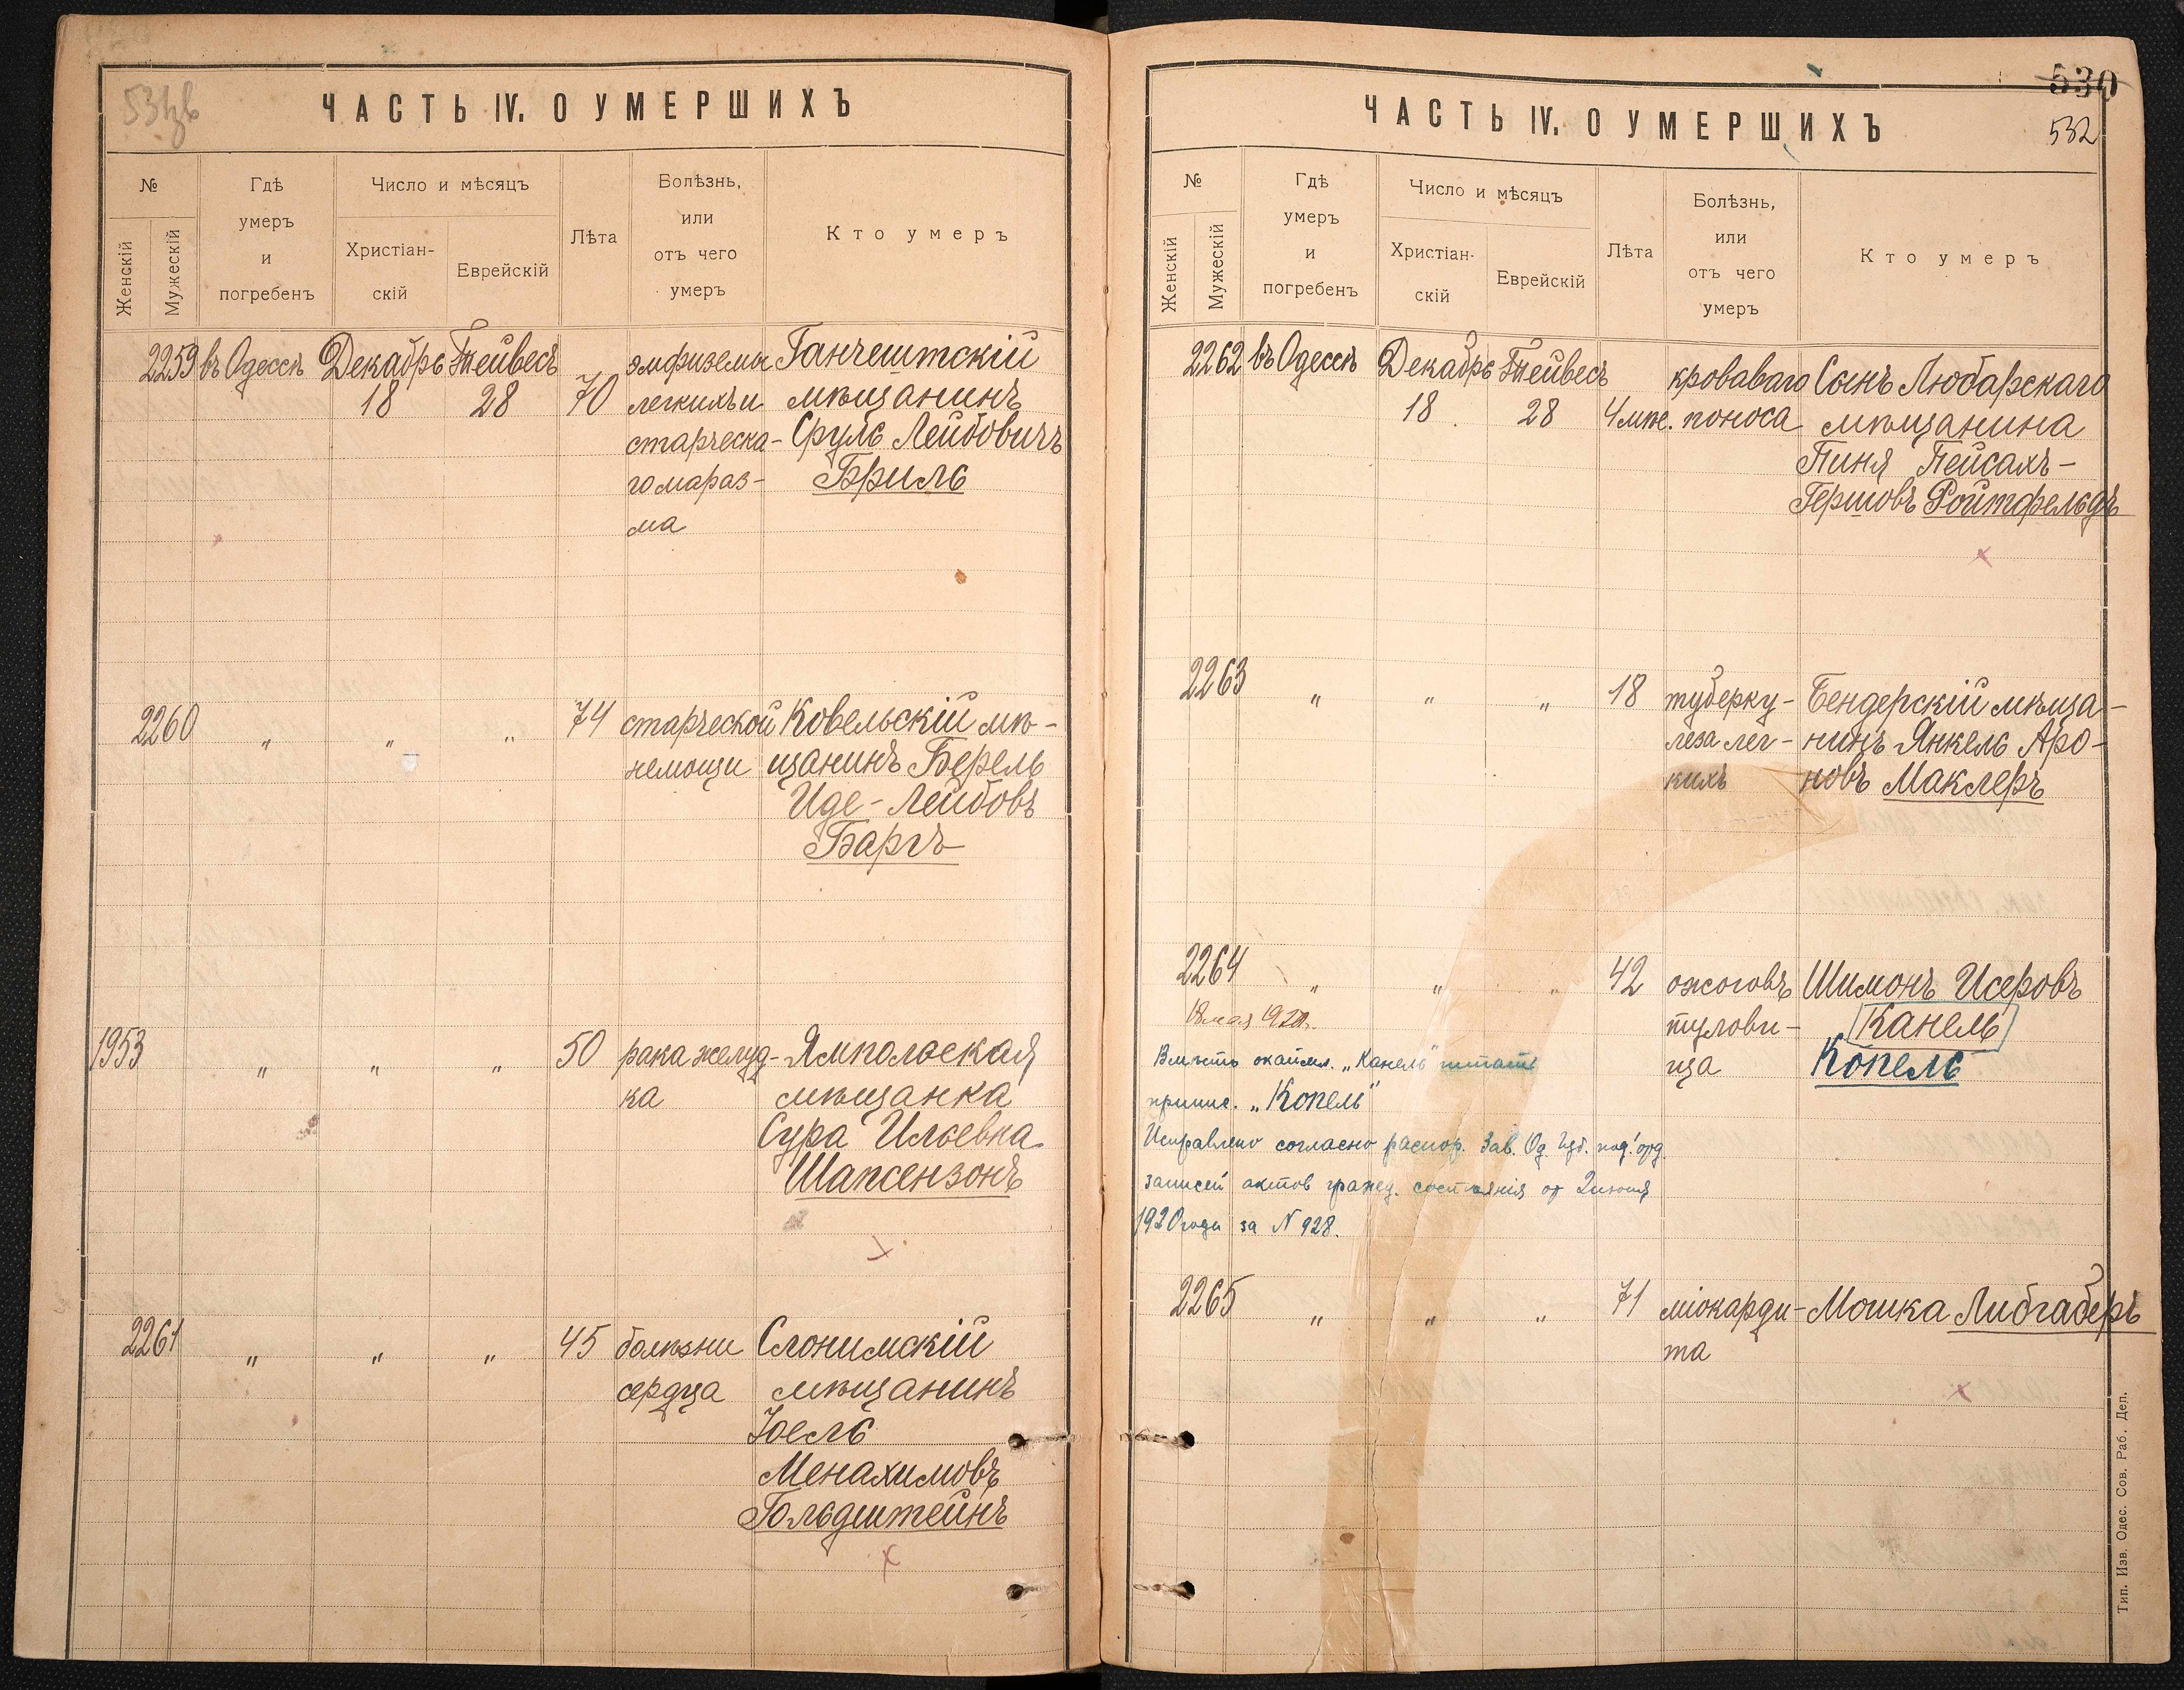 ЧАСТЬ IV. О УМЕРШИХЪ
№
Женскій
Мужескій
Гдѣ
умеръ
и
погребенъ
Число и мѣсяцъ
Христіан-
скій
Еврейскій
Лѣта
Болѣзнь,
или
отъ чего
умеръ
Кто умеръ
2259 въ Одессѣ Декабрь Тейвесъ эмфиземы Ганчештскій
18 28 70 легкихъ и мѣщанинъ
старческа- Сруль Лейбовичъ
го мараз- Бриль
ма
2260 " " " 74 старческой Ковельскій мѣ-
немощи щанинъ Берель
Иде-Лейбовъ
Баргъ
1953 " " " 50 рака желуд- Ямпольская
ка мѣщанка
Сура Ильевна
Шапсензонъ
2261 " " " 45 болѣзни Слонимскій
сердца мѣщанинъ
Юель
Менахимовъ
Гольдштейнъ
530
532
ЧАСТЬ IV. О УМЕРШИХЪ
№
Женскій
Мужескій
Гдѣ
умеръ
и
погребенъ
Число и мѣсяцъ
Христіан-
скій
Еврейскій
Лѣта
Болѣзнь,
или
отъ чего
умеръ
Кто умеръ
2262 въ Одессѣ Декабрь Тейвесъ кроваваго Сынъ Любарскаго
18 28 4 мѣс. поноса мѣщанина
Пиня Пейсахъ-
Гершовъ Ройтфельдъ
2263 " " " 18 туберку- Бендерскій мѣща-
леза лег- нинъ Янкель Аро-
кихъ новъ Маклеръ
2264 " " " 42 ожоговъ Шимонъ Исеровъ
18 мая 1920. тулови- Канель
ща Копель
Вмѣсто окайм. „Канель" читать
припис. „Копель"
Исправлено согласно распор. Зав. Од. Губ. под'отд.
записей актов гражд. состоянія от 2 іюня
1920 года за N 928.
2265 " " " 71 міокарди- Мошка Либгаберъ
та
Тип. Изв. Одес. Сов. Раб. Деп.